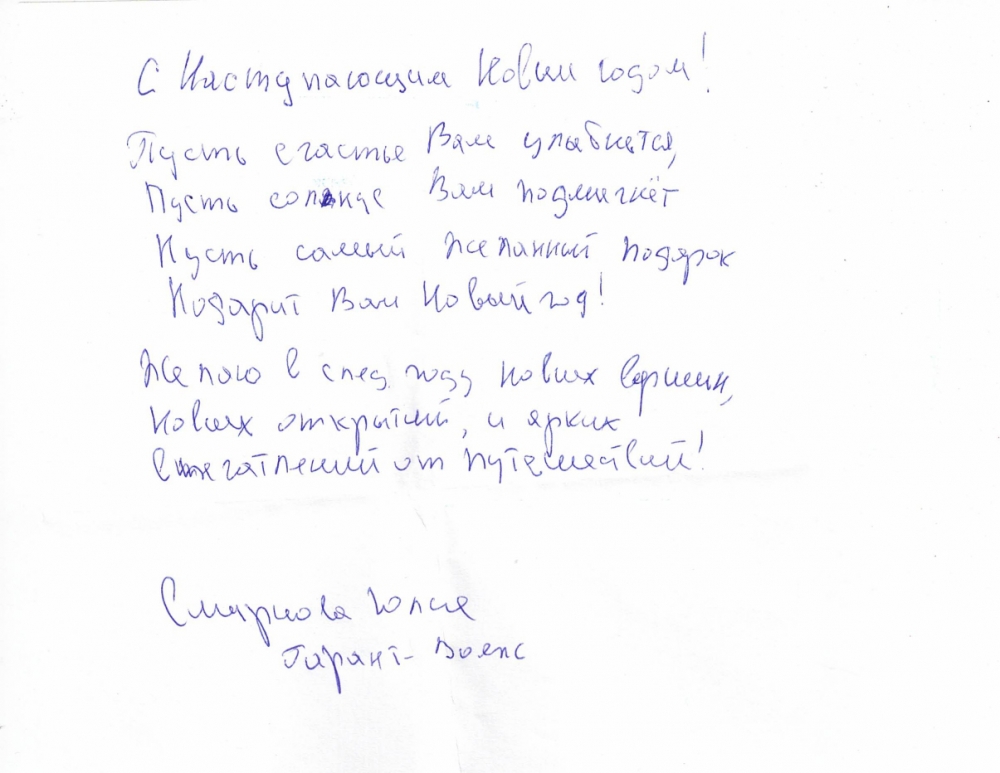 С Наступающим Новым годом!
Пусть счастье Вам улыбнется,
Пусть солнце Вам подмигнёт
Пусть самый желанный подарок
Подарит Вам Новый год!
Желаю в след. году новых вершин,
новых открытий, и ярких
впечатлений от путешествий!
Смирнова Юлия
Гарант-Вояж